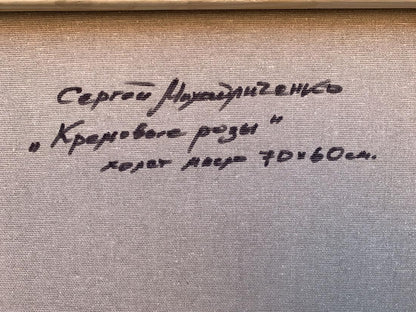 Сергей Михайличенко
„Кремовые розы"
холст масло 70×60см.